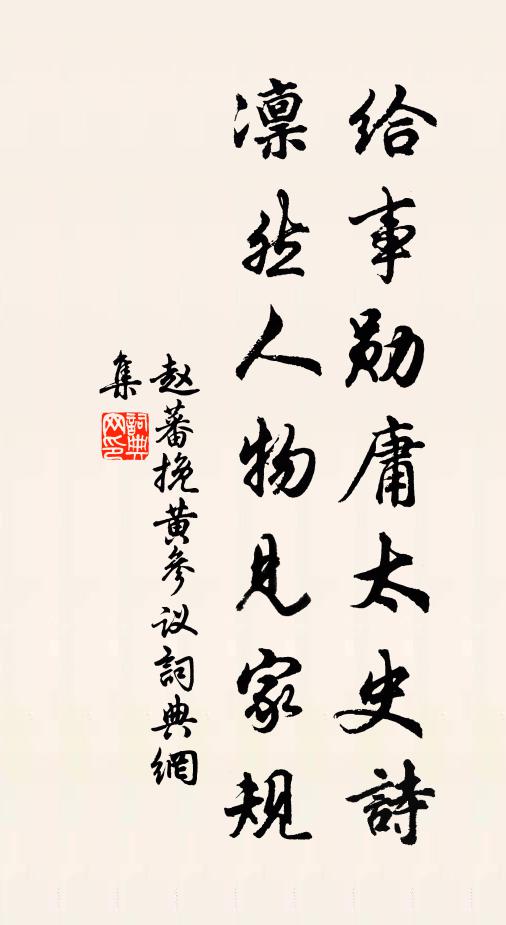 给事勋庸太史詩
凛然人物見家規
赵蕃挽黄参议詞典網
集
詞典網印